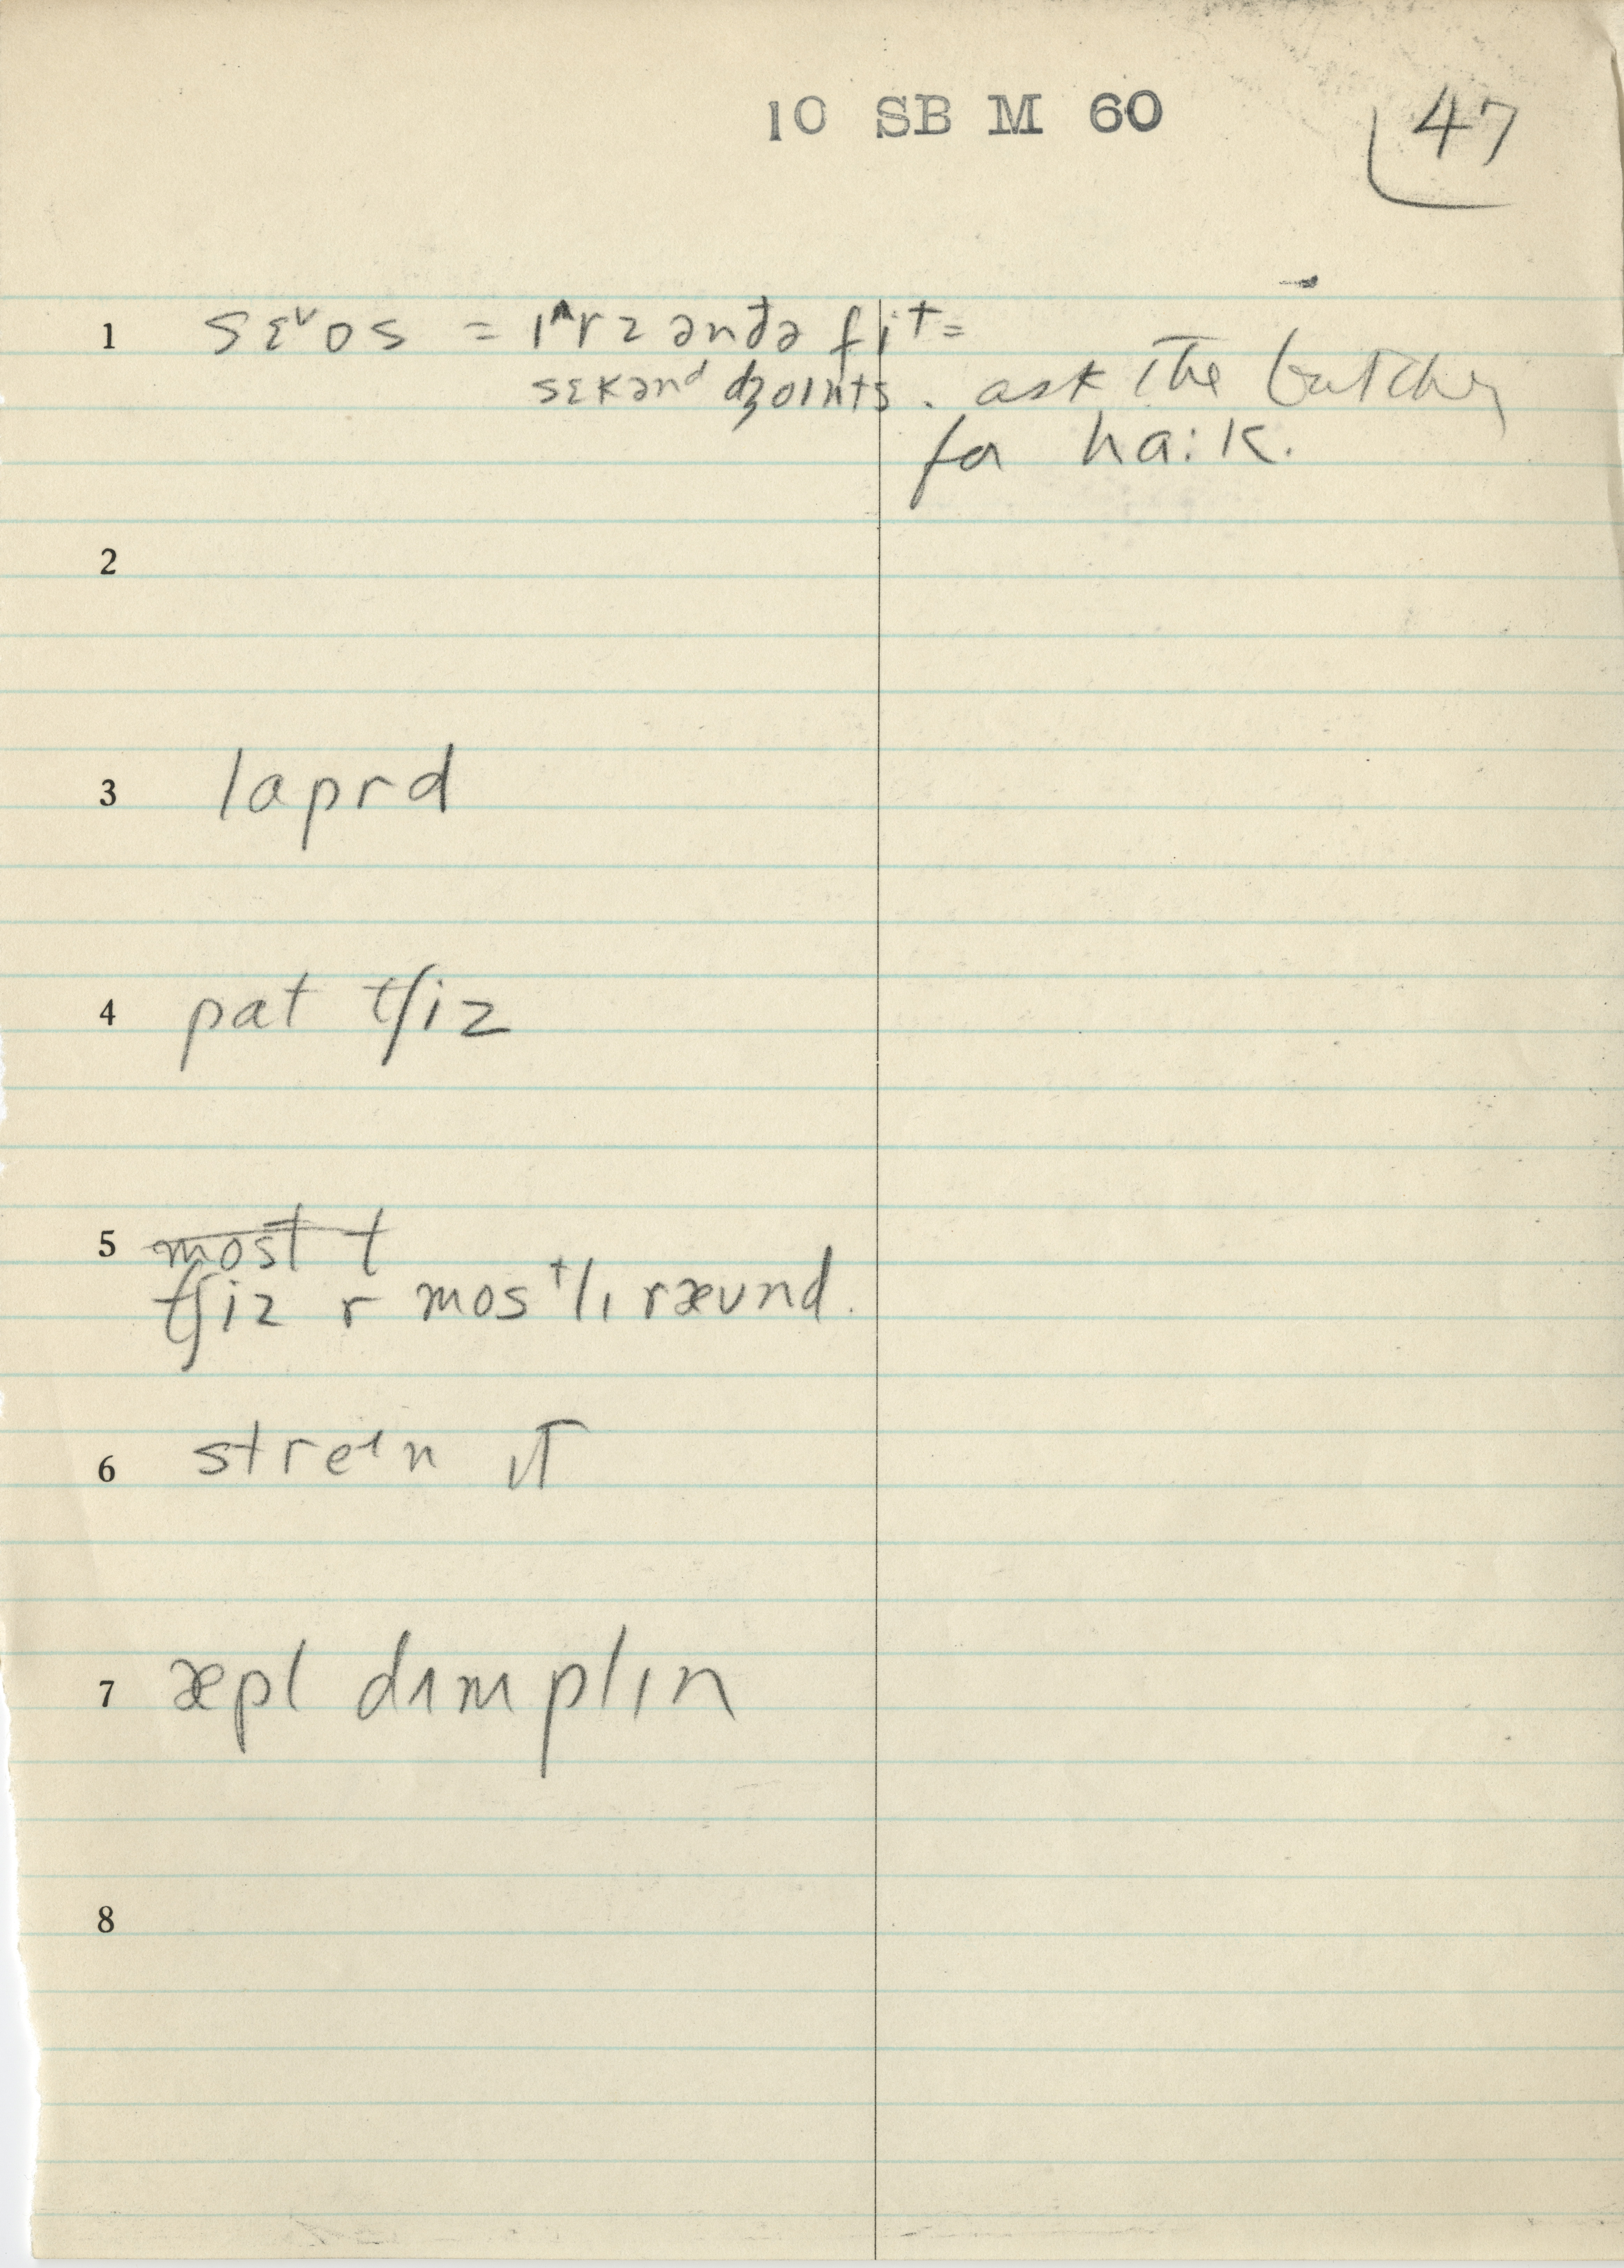 10 SB M 60
47
1 sɛᵛos = ɪʌrz ənđə fit =
sɛkənᵈ dʒoɪnts. ask the butcher
for ha:k.
2
3 laprd
4 pat tʃiz
5 ~~most t~~
tʃiz r mosᵗlɪ ræʊnd.
6 streᶦn ɪT
7 æpl dɪmplɪn
8